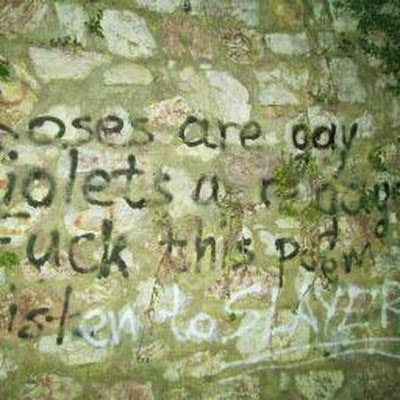 Roses are gay
Violets are gay
Fuck this poem
listen to SLAYER